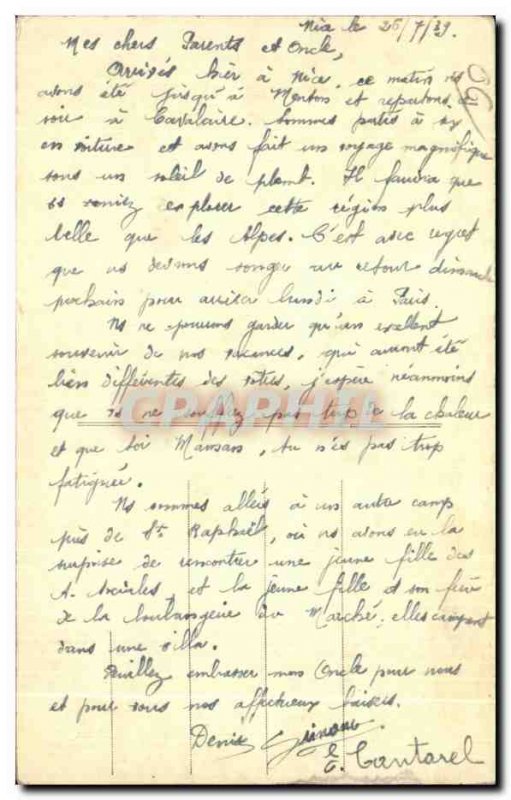 Nice le 26/7/39.
Mes chers Parents et Oncle,
Arrivés hier à Nice, ce matin ns
avons été jusqu'à Menton et repartons ce
soir à Cavalaire. Sommes partis à six
en voiture et avons fait un voyage magnifique
sous un soleil de plomb. Il faudra que
vs veniez explorer cette région plus
belle que les Alpes. C'est avec regret
que ns devons songer au retour dimanche
prochain pour arriver lundi à Paris.
Ns ne pouvons garder qu'un excellent
souvenir de nos vacances, qui auront été
bien différentes des vôtres, j'espère néanmoins
que vs ne souffrez pas trop de la chaleur
et que toi Maman, tu n'es pas trop
fatiguée.
Ns sommes allés à un autre camp
près de St Raphaël, où ns avons eu la
surprise de rencontrer une jeune fille des
A. Sociales, et la jeune fille et son frère
de la boulangerie du Marché, elles campent
dans une villa.
Veuillez embrasser mon Oncle pour nous
et pour vous nos affectueux baisers.
Denise
Cantarel
CPAPHIL